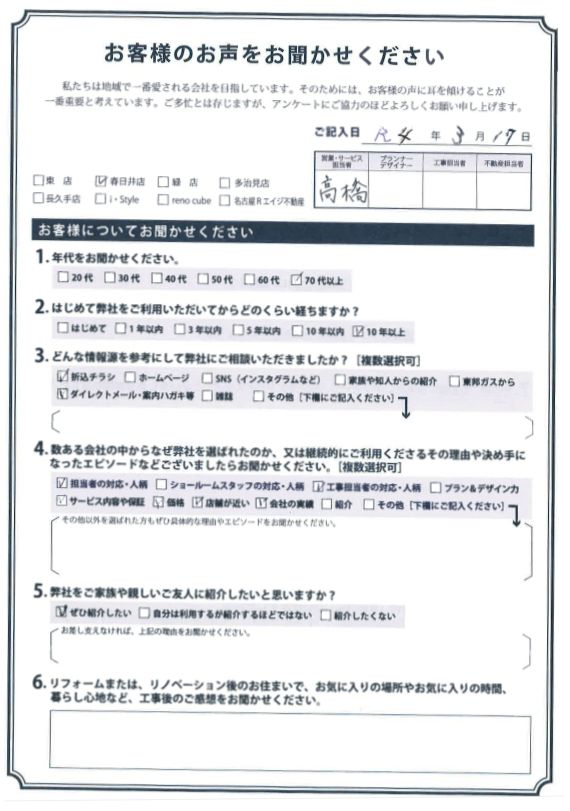 お客様のお声をお聞かせください
私たちは地域で一番愛される会社を目指しています。そのためには、お客様の声に耳を傾けることが
一番重要と考えています。ご多忙とは存じますが、アンケートにご協力のほどよろしくお願い申し上げます。
ご記入日 R4 年 3 月 17 日
営業・サービス担当者 プランナーデザイナー 工事担当者 不動産担当者
高橋
□東 店 ☑春日井店 □緑 店 □多治見店
□長久手店 □i・Style □reno cube □名古屋Rエイジ不動産
お客様についてお聞かせください
1. 年代をお聞かせください。
□20代 □30代 □40代 □50代 □60代 ☑70代以上
2. はじめて弊社をご利用いただいてからどのくらい経ちますか?
□はじめて □1年以内 □3年以内 □5年以内 □10年以内 ☑10年以上
3. どんな情報源を参考にして弊社にご相談いただきましたか?[複数選択可]
☑折込チラシ □ホームページ □SNS(インスタグラムなど) □家族や知人からの紹介 □東邦ガスから
☑ダイレクトメール・案内ハガキ等 □雑誌 □その他[下欄にご記入ください]
4. 数ある会社の中からなぜ弊社を選ばれたのか、又は継続的にご利用くださるその理由や決め手に
なったエピソードなどございましたらお聞かせください。[複数選択可]
☑担当者の対応・人柄 □ショールームスタッフの対応・人柄 ☑工事担当者の対応・人柄 □プラン&デザイン力
☑サービス内容や保証 ☑価格 ☑店舗が近い ☑会社の実績 □紹介 □その他[下欄にご記入ください]
その他以外を選ばれた方もぜひ具体的な理由やエピソードをお聞かせください。
5. 弊社をご家族や親しいご友人に紹介したいと思いますか?
☑ぜひ紹介したい □自分は利用するが紹介するほどではない □紹介したくない
お差し支えなければ、上記の理由をお聞かせください。
6. リフォームまたは、リノベーション後のお住まいで、お気に入りの場所やお気に入りの時間、
暮らし心地など、工事後のご感想をお聞かせください。